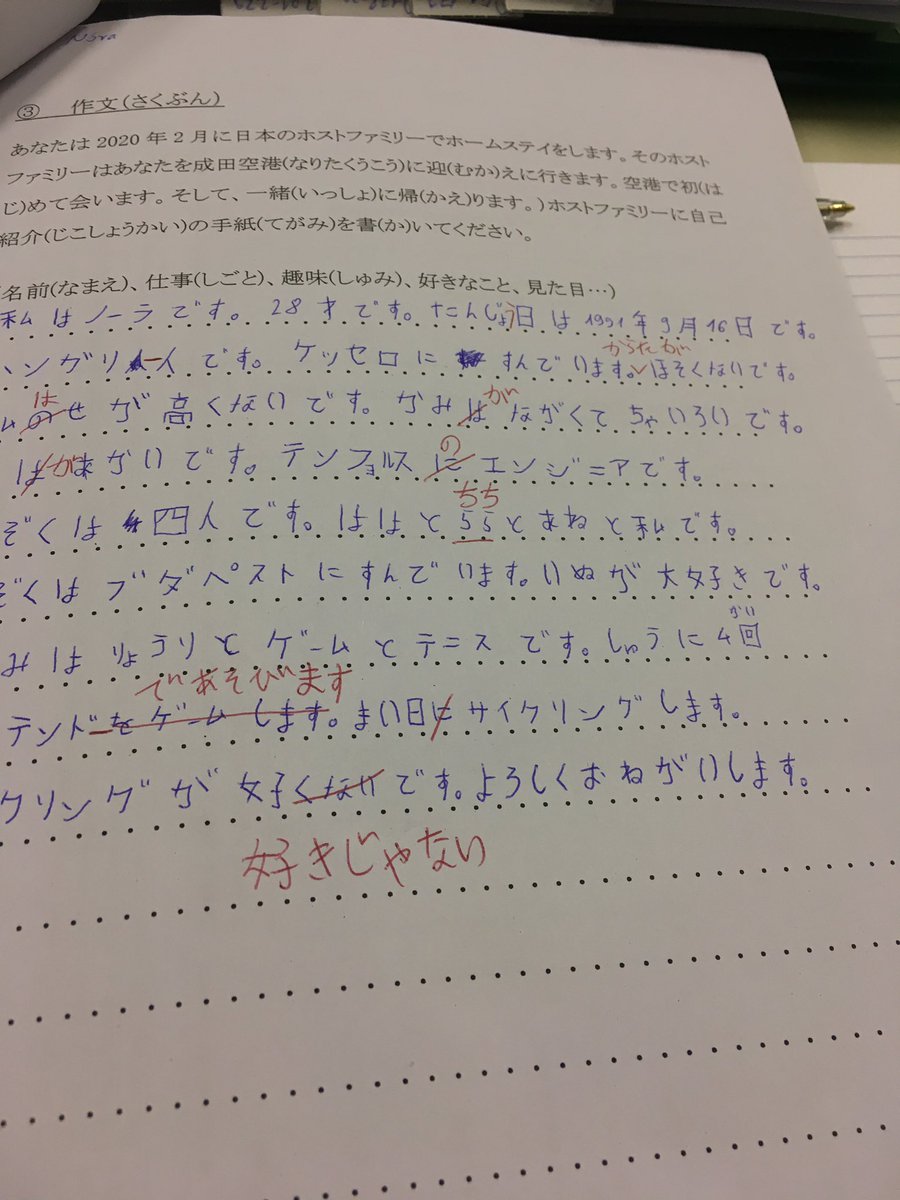 ③ 作文(さくぶん)
あなたは 2020 年 2 月に日本のホストファミリーでホームステイをします。そのホスト
ファミリーはあなたを成田空港(なりたくうこう)に迎(むか)えに行きます。空港で初(は
じ)めて会います。そして、一緒(いっしょ)に帰(かえ)ります。)ホストファミリーに自己
紹介(じこしょうかい)の手紙(てがみ)を書(か)いてください。
名前(なまえ)、仕事(しごと)、趣味(しゅみ)、好きなこと、見た目…)
私はノーラです。28才です。たんじょう日は1991年9月16日です。
からだが
ハングリー人です。ケッセロにすんでいます。ほそくないです。
は が
ムのせが高くないです。かみはながくてちゃいろいです。
の
テンフォルスにエンジニアです。
ちち
ぞくは四人です。ははとちちとあねと私です。
ぞくはブダペストにすんでいます。いぬが大好きです。
かい
みはりょうりとゲームとテニスです。しゅうに4回
であそびます
テンドーをゲームします。まい日にサイクリングします。
クリングが好くないです。よろしくおねがいします。
好きじゃない